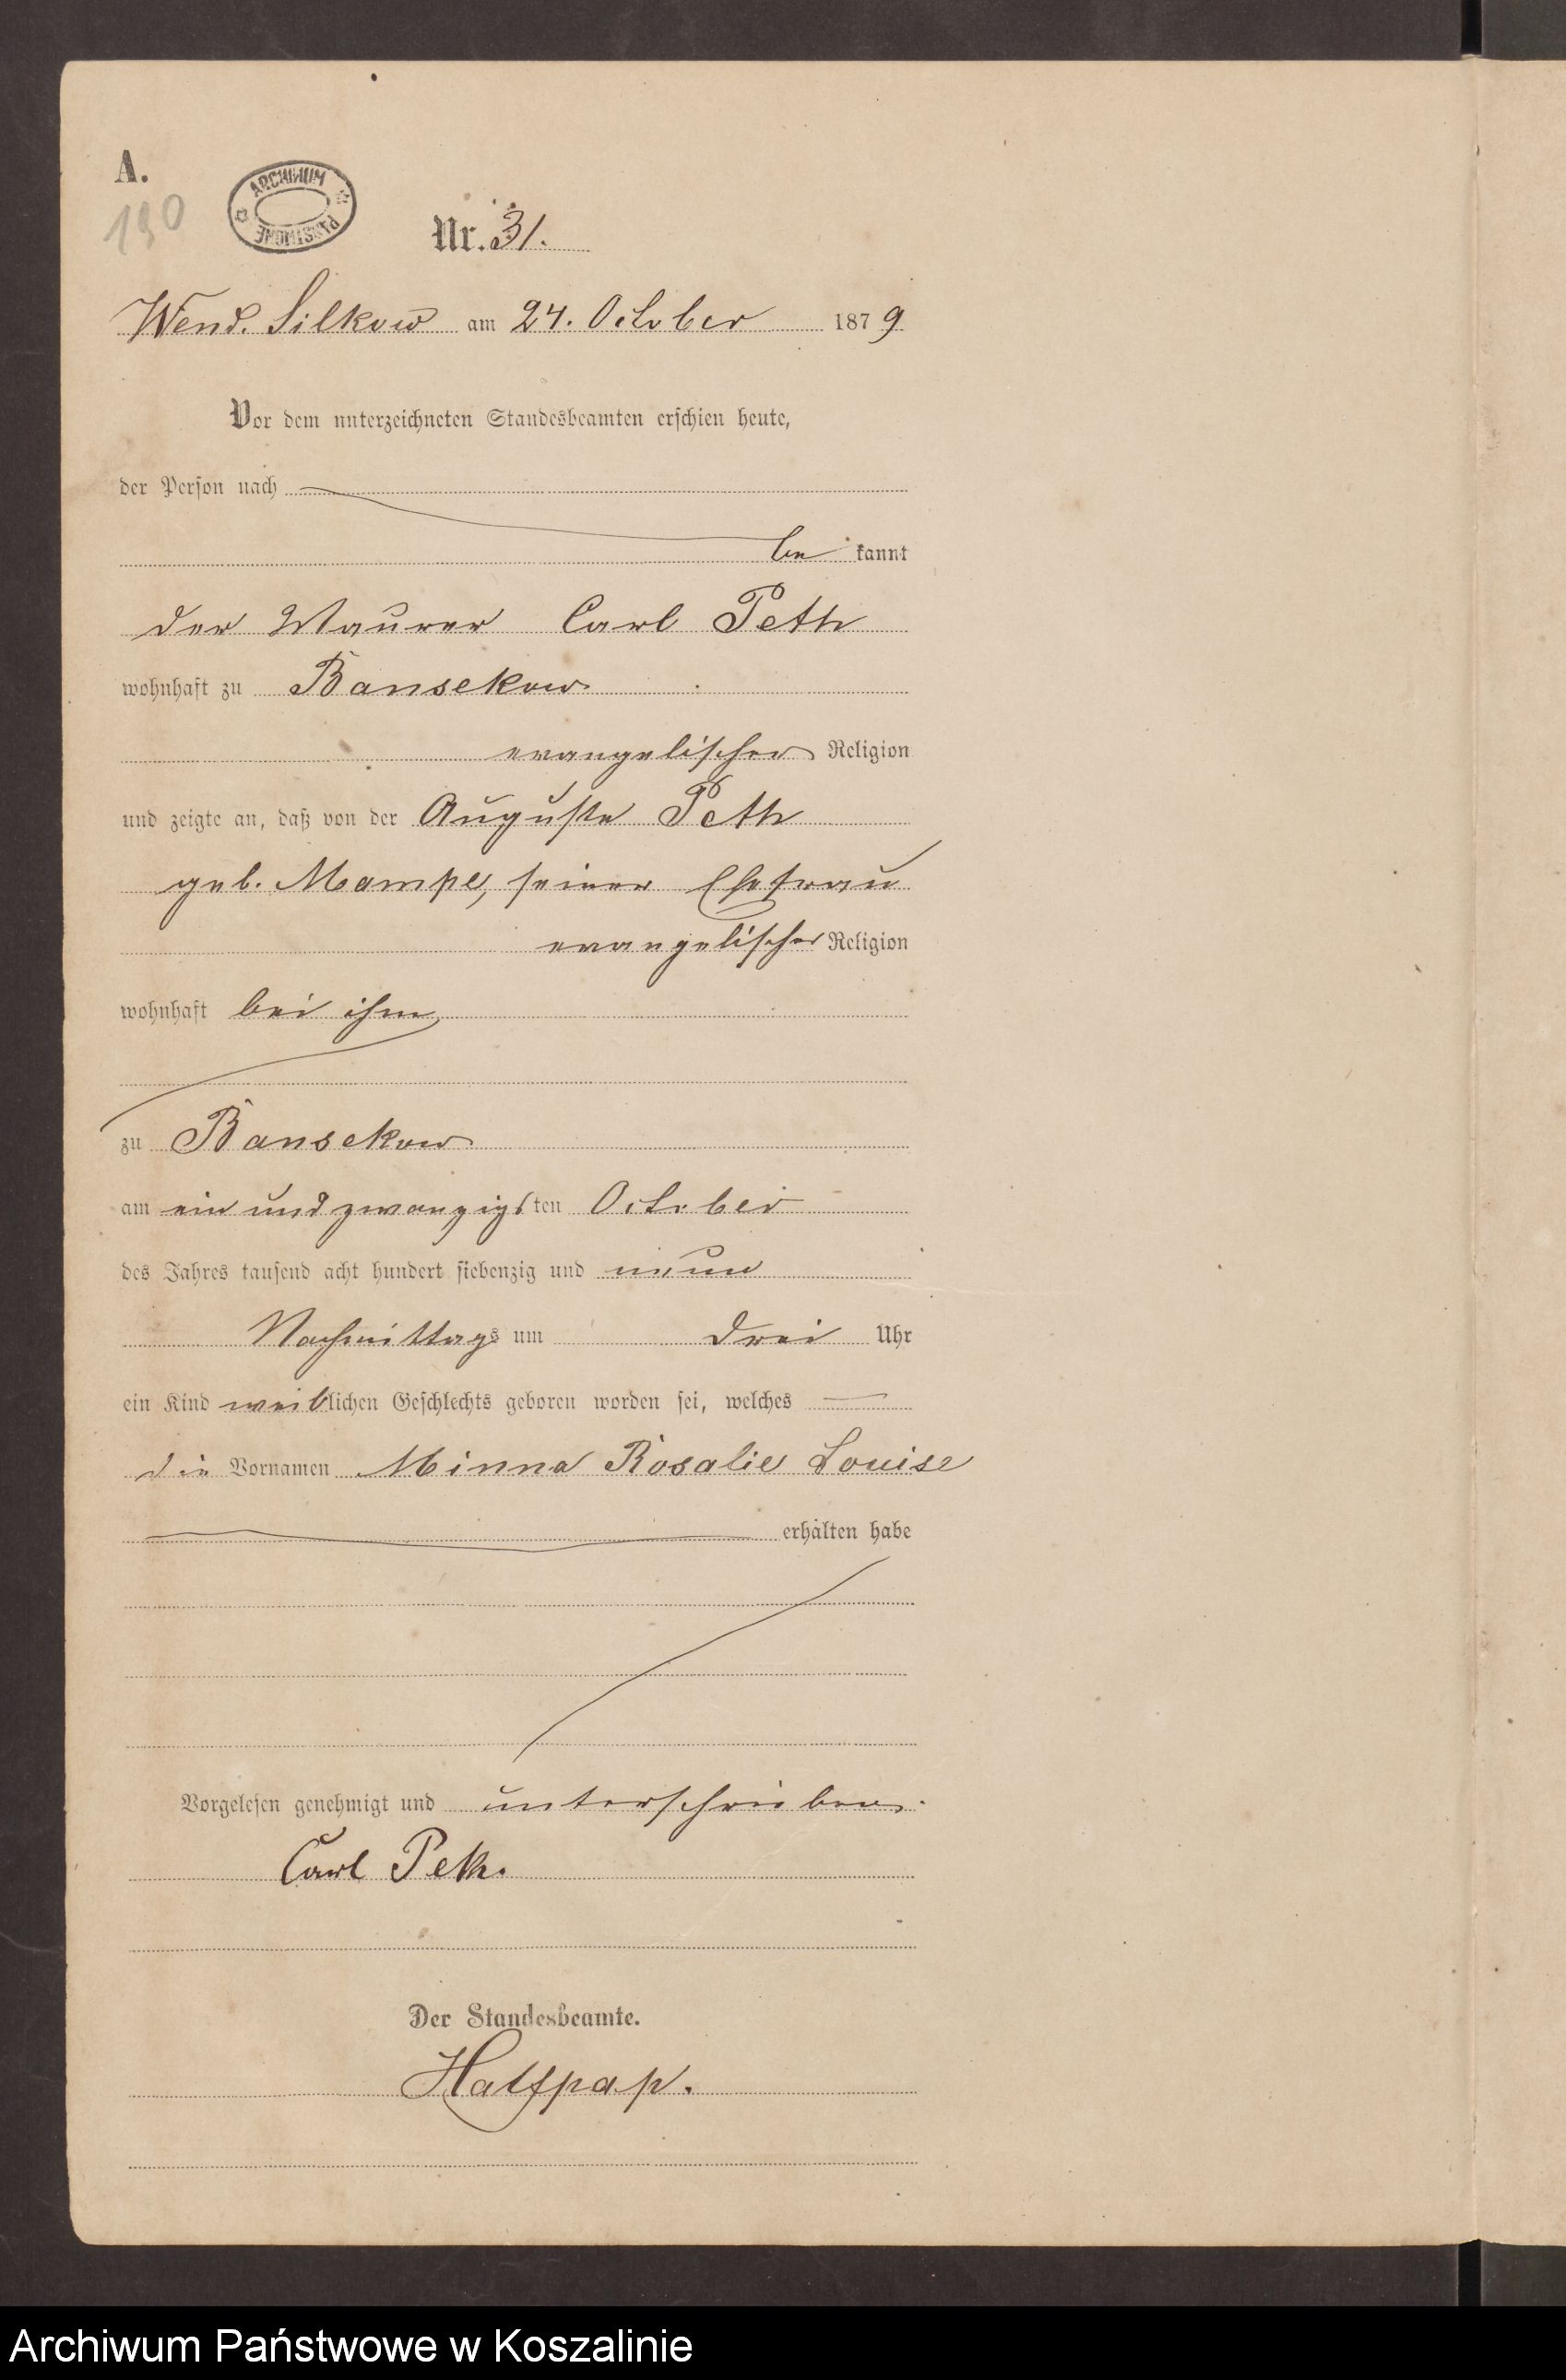 A.
190
ARCHIWUM PAŃSTWOWE
Nr. 31.
Wend. Silkow am 24. October 1879
Vor dem unterzeichneten Standesbeamten erschien heute,
der Person nach
be kannt
der Maurer Carl Peth
wohnhaft zu Bansekow
evangelischer Religion
und zeigte an, daß von der Auguste Peth
geb. Mampe, seiner Ehefrau
evangelischer Religion
wohnhaft bei ihm
zu Bansekow
am ein und zwanzigsten October
des Jahres tausend acht hundert siebenzig und neun
Nachmittags um drei Uhr
ein Kind weiblichen Geschlechts geboren worden sei, welches
die Vornamen Minna Rosalie Louise
erhalten habe
Vorgelesen genehmigt und unterschrieben.
Carl Peth.
Der Standesbeamte.
Halfpap.
Archiwum Państwowe w Koszalinie